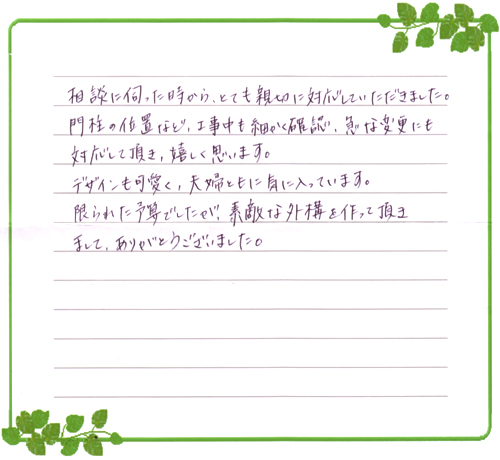 相談に伺った時から、とても親切に対応していただきました。
門柱の位置など、工事中も細かく確認、急な変更にも
対応して頂き、嬉しく思います。
デザインも可愛く、夫婦ともに気に入っています。
限られた予算でしたが、素敵な外構を作って頂き
まして、ありがとうございました。